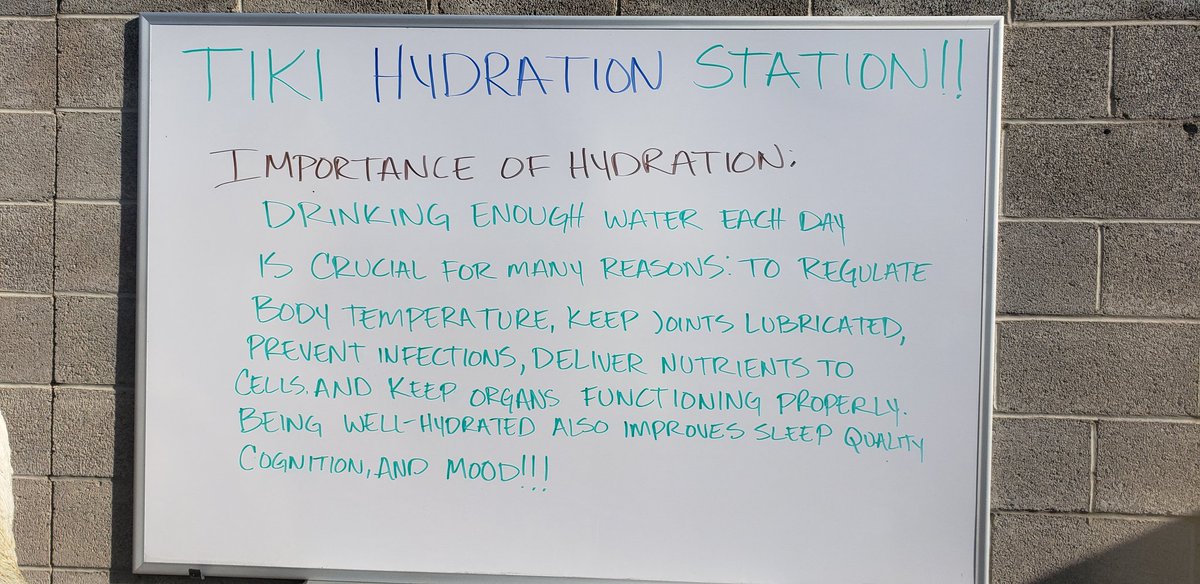 TIKI HYDRATION STATION!!
IMPORTANCE OF HYDRATION:
DRINKING ENOUGH WATER EACH DAY
IS CRUCIAL FOR MANY REASONS: TO REGULATE
BODY TEMPERATURE, KEEP JOINTS LUBRICATED,
PREVENT INFECTIONS, DELIVER NUTRIENTS TO
CELLS. AND KEEP ORGANS FUNCTIONING PROPERLY.
BEING WELL-HYDRATED ALSO IMPROVES SLEEP QUALITY
COGNITION, AND MOOD!!!